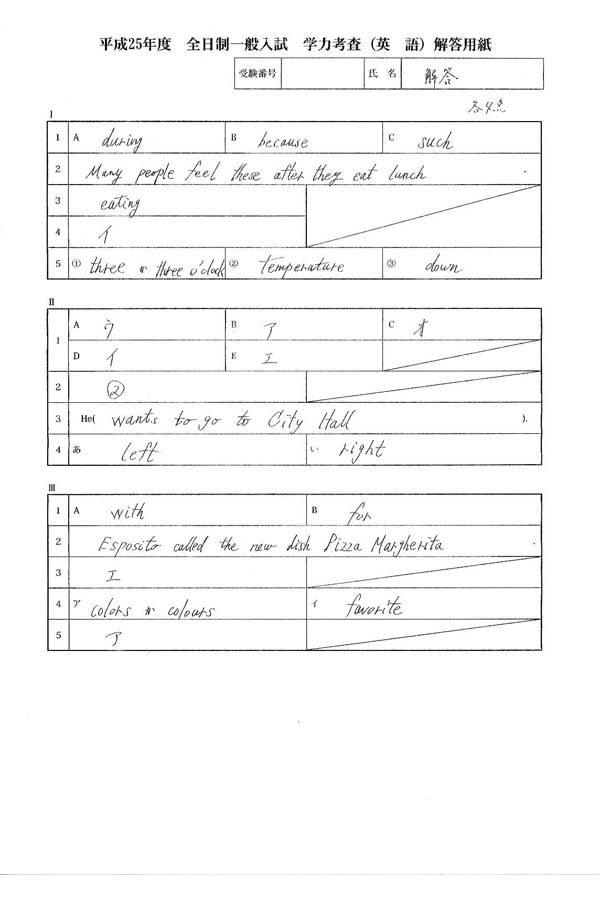 平成25年度 全日制一般入試 学力考査（英 語）解答用紙
受験番号 氏 名 解答
各4点
I
1 A during B because C such
2 Many people feel these after they eat lunch .
3 eating
4 イ
5 ① three か three o'clock ② temperature ③ down
II
1 A ウ B ア C オ
D イ E エ
2 ②
3 He( wants to go to City Hall ).
4 あ left い right
III
1 A with B for
2 Esposito called the new dish Pizza Margherita .
3 エ
4 ア colors か colours イ favorite
5 ア